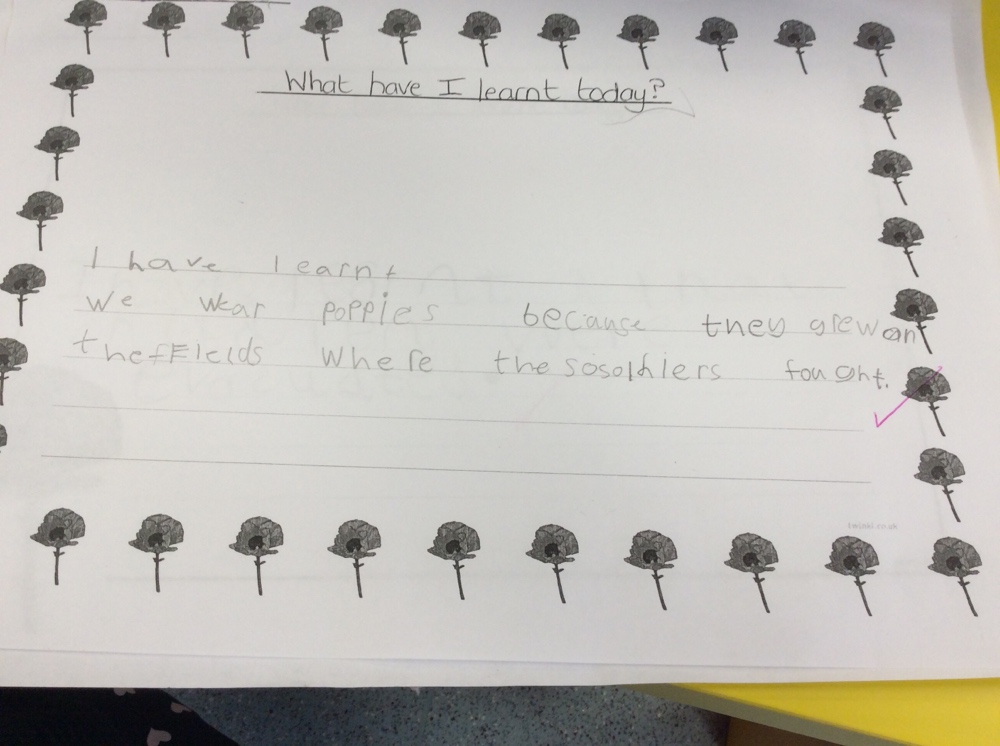 What have I learnt today?
I have learnt
we wear poppies because they grew on
the fFields where the sosolhiers fought.
twinkl.co.uk